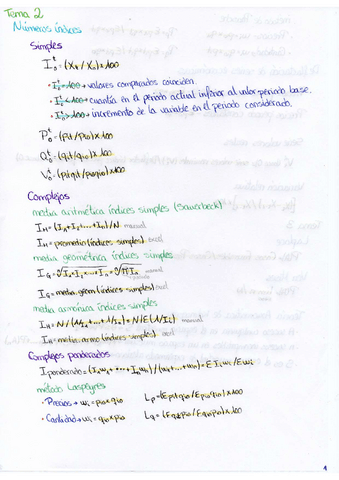 Tema 2
Números índices
Simples
I₀ᵗ = (Xt / X₀) x 100
• I₀ᵗ = 100 → valores comparados coinciden.
• I₀ᵗ < 100 → cuantía en el periodo actual inferior al valor periodo base.
• I₀ᵗ > 100 → incremento de la variable en el periodo considerado.
P₀ᵗ = (pit/pio) x 100
Q₀ᵗ = (qit/qio) x 100
V₀ᵗ = (pitqit/pioqio) x 100
Complejos
media aritmética índices simples (Sauerbeck)
IM = (I₁+I₂+...+In)/N manual
IM = promedio (índices simples) excel
media geométrica índices simples
IG = ᴺ√I₁ x I₂ x ... x In = ᴺ√∏ In manual
IG = media.geom (índices simples) excel
media armónica índices simples
IH = N/(1/I₁ + ... + 1/In) = N/Σ(1/Ii) manual
IH = media.armo (índices simples) excel
Complejos ponderados
Iponderado = (I₁w₁ + ... + Inwn)/(w₁ + ... + wn) = ΣIiwi/Σwi
método Laspeyres
• Precios → wi = pio x qio Lp = (Σpitqio/Σpioqio) x 100
• Cantidad → wi = qio x pio Lq = (Σqitpio/Σqiopio) x 100
1